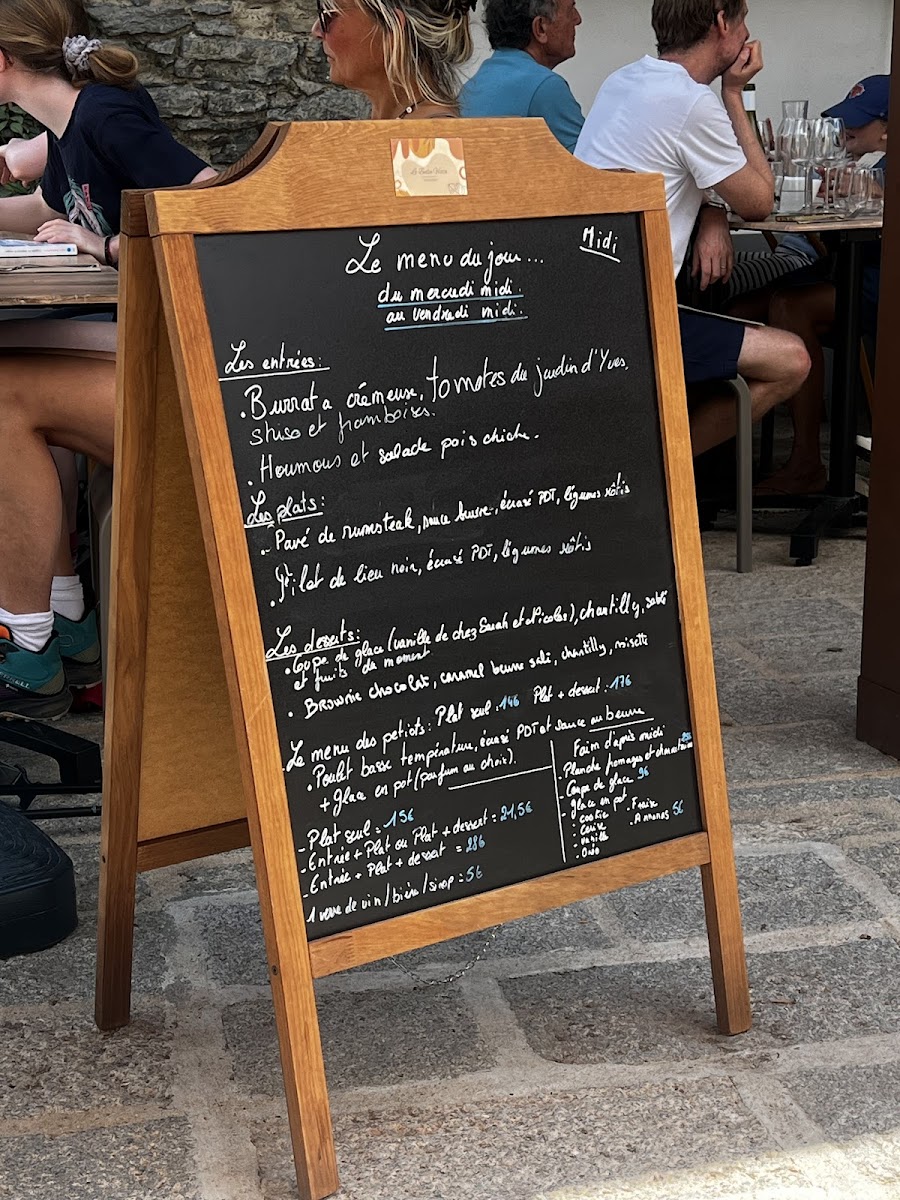 Midi
Le menu du jour...
du mercredi midi
au vendredi midi.
Les entrées:
. Burrata crémeuse, tomates du jardin d'Yves,
et framboises.
. Houmous et salade pois chiche.
Les plats:
- Pavé de rumsteak, sauce beurre, écrasé PDT, légumes rôtis
. Filet de lieu noir, écrasé PDT, légumes rôtis
Les desserts:
. Coupe de glace (vanille de chez Sarah et Nicolas), chantilly, sablé
et fruits du moment
. Brownie chocolat, caramel beurre salé, chantilly, noisette
Le menu des petiots: Plat seul: 14€ Plat + dessert: 17€
. Poulet basse température, écrasé PDT et sauce au beurre
+ Glace en pot (parfum au choix).
- Plat seul = 15€
- Entrée + Plat ou Plat + dessert = 21,5€
- Entrée + Plat + dessert = 28€
1 verre de vin/bière/sirop = 5€
Faim d'après midi
- Planche fromages et charcuterie
- Coupe de glace 9€
- Glace en pot
. cookie . Fraise
. Cerise . Ananas 5€
. vanille